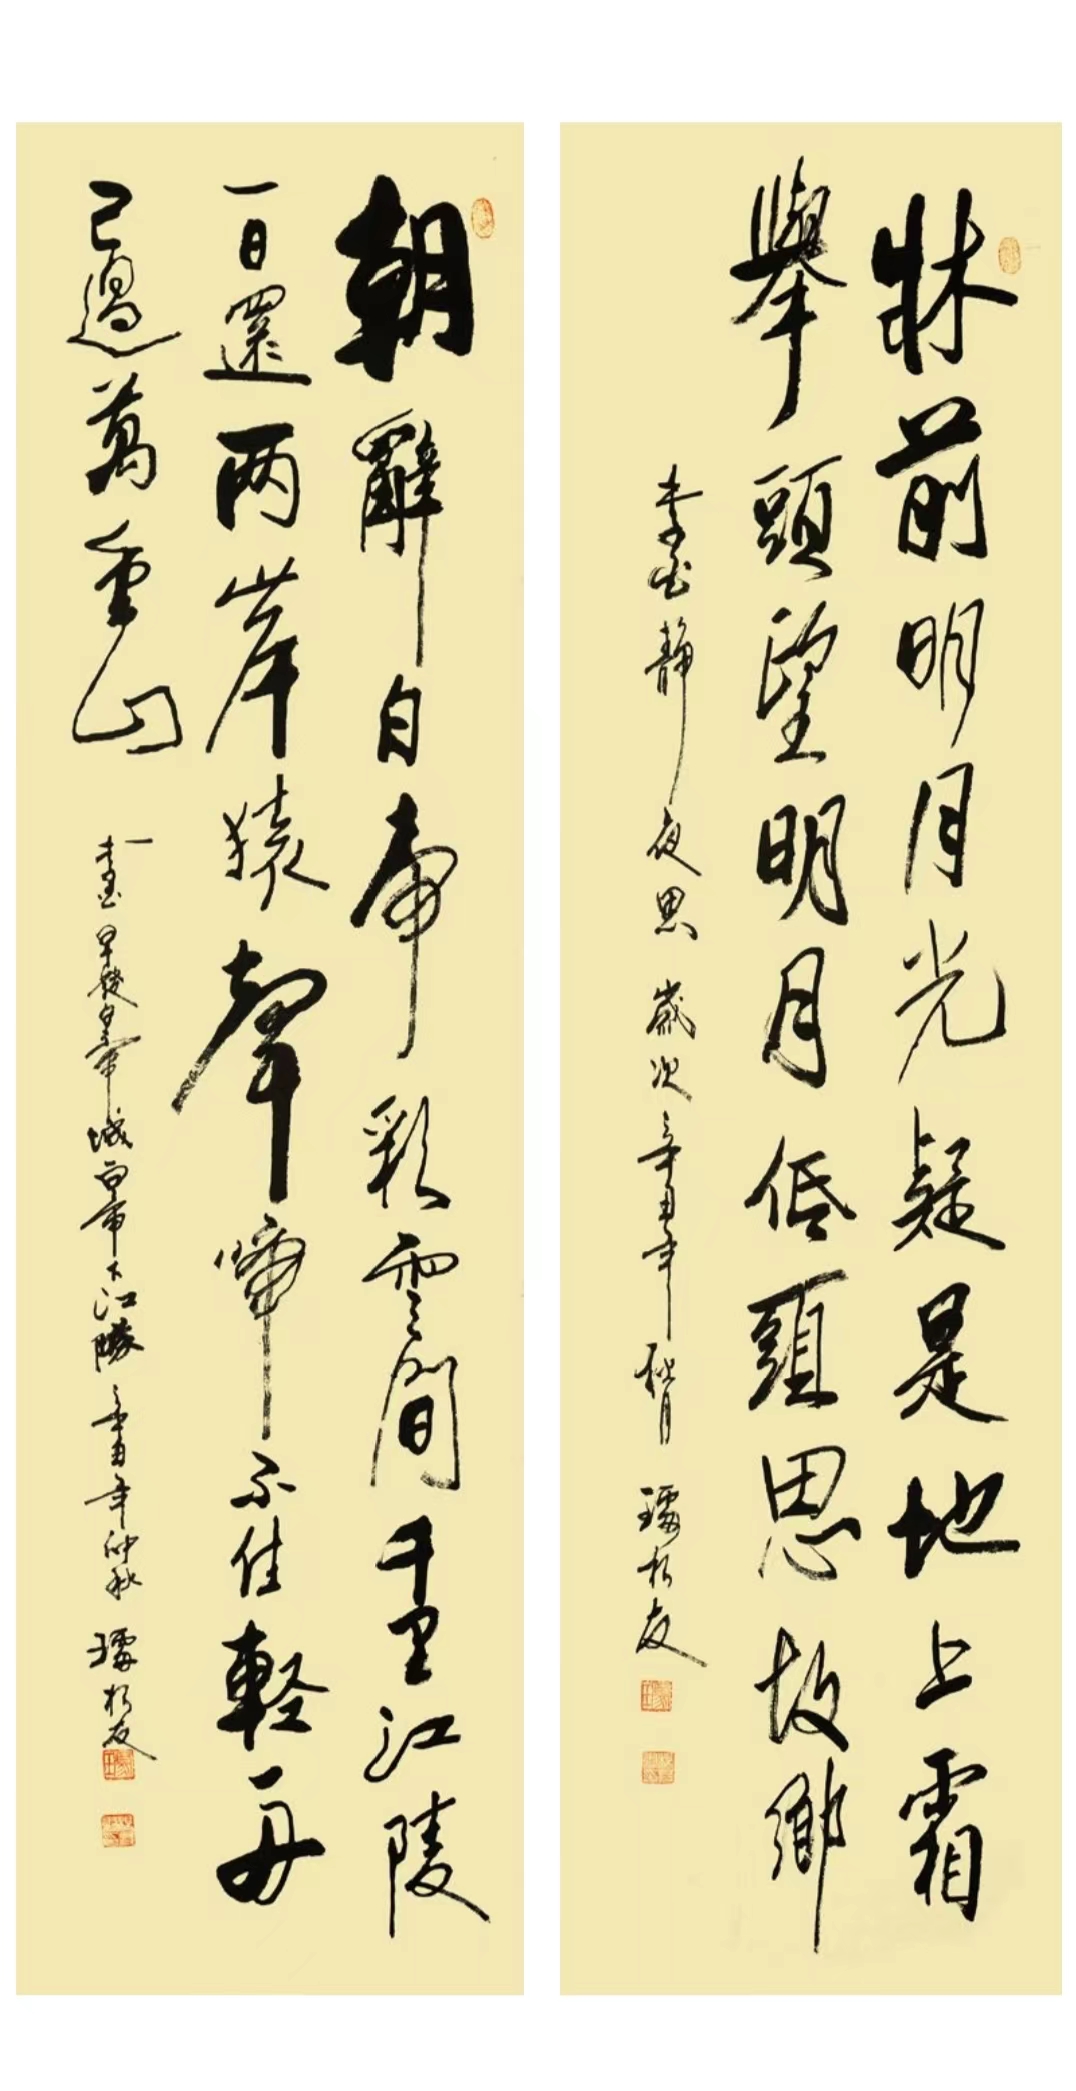 牀前明月光疑是地上霜
舉頭望明月低頭思故鄉
李白靜夜思 歲次辛丑年秋月
朝辭白帝彩雲間千里江陵
一日還两岸猿聲啼不住軽舟
已過萬重山
李白早發白帝城白帝下江陵 辛丑年仲秋